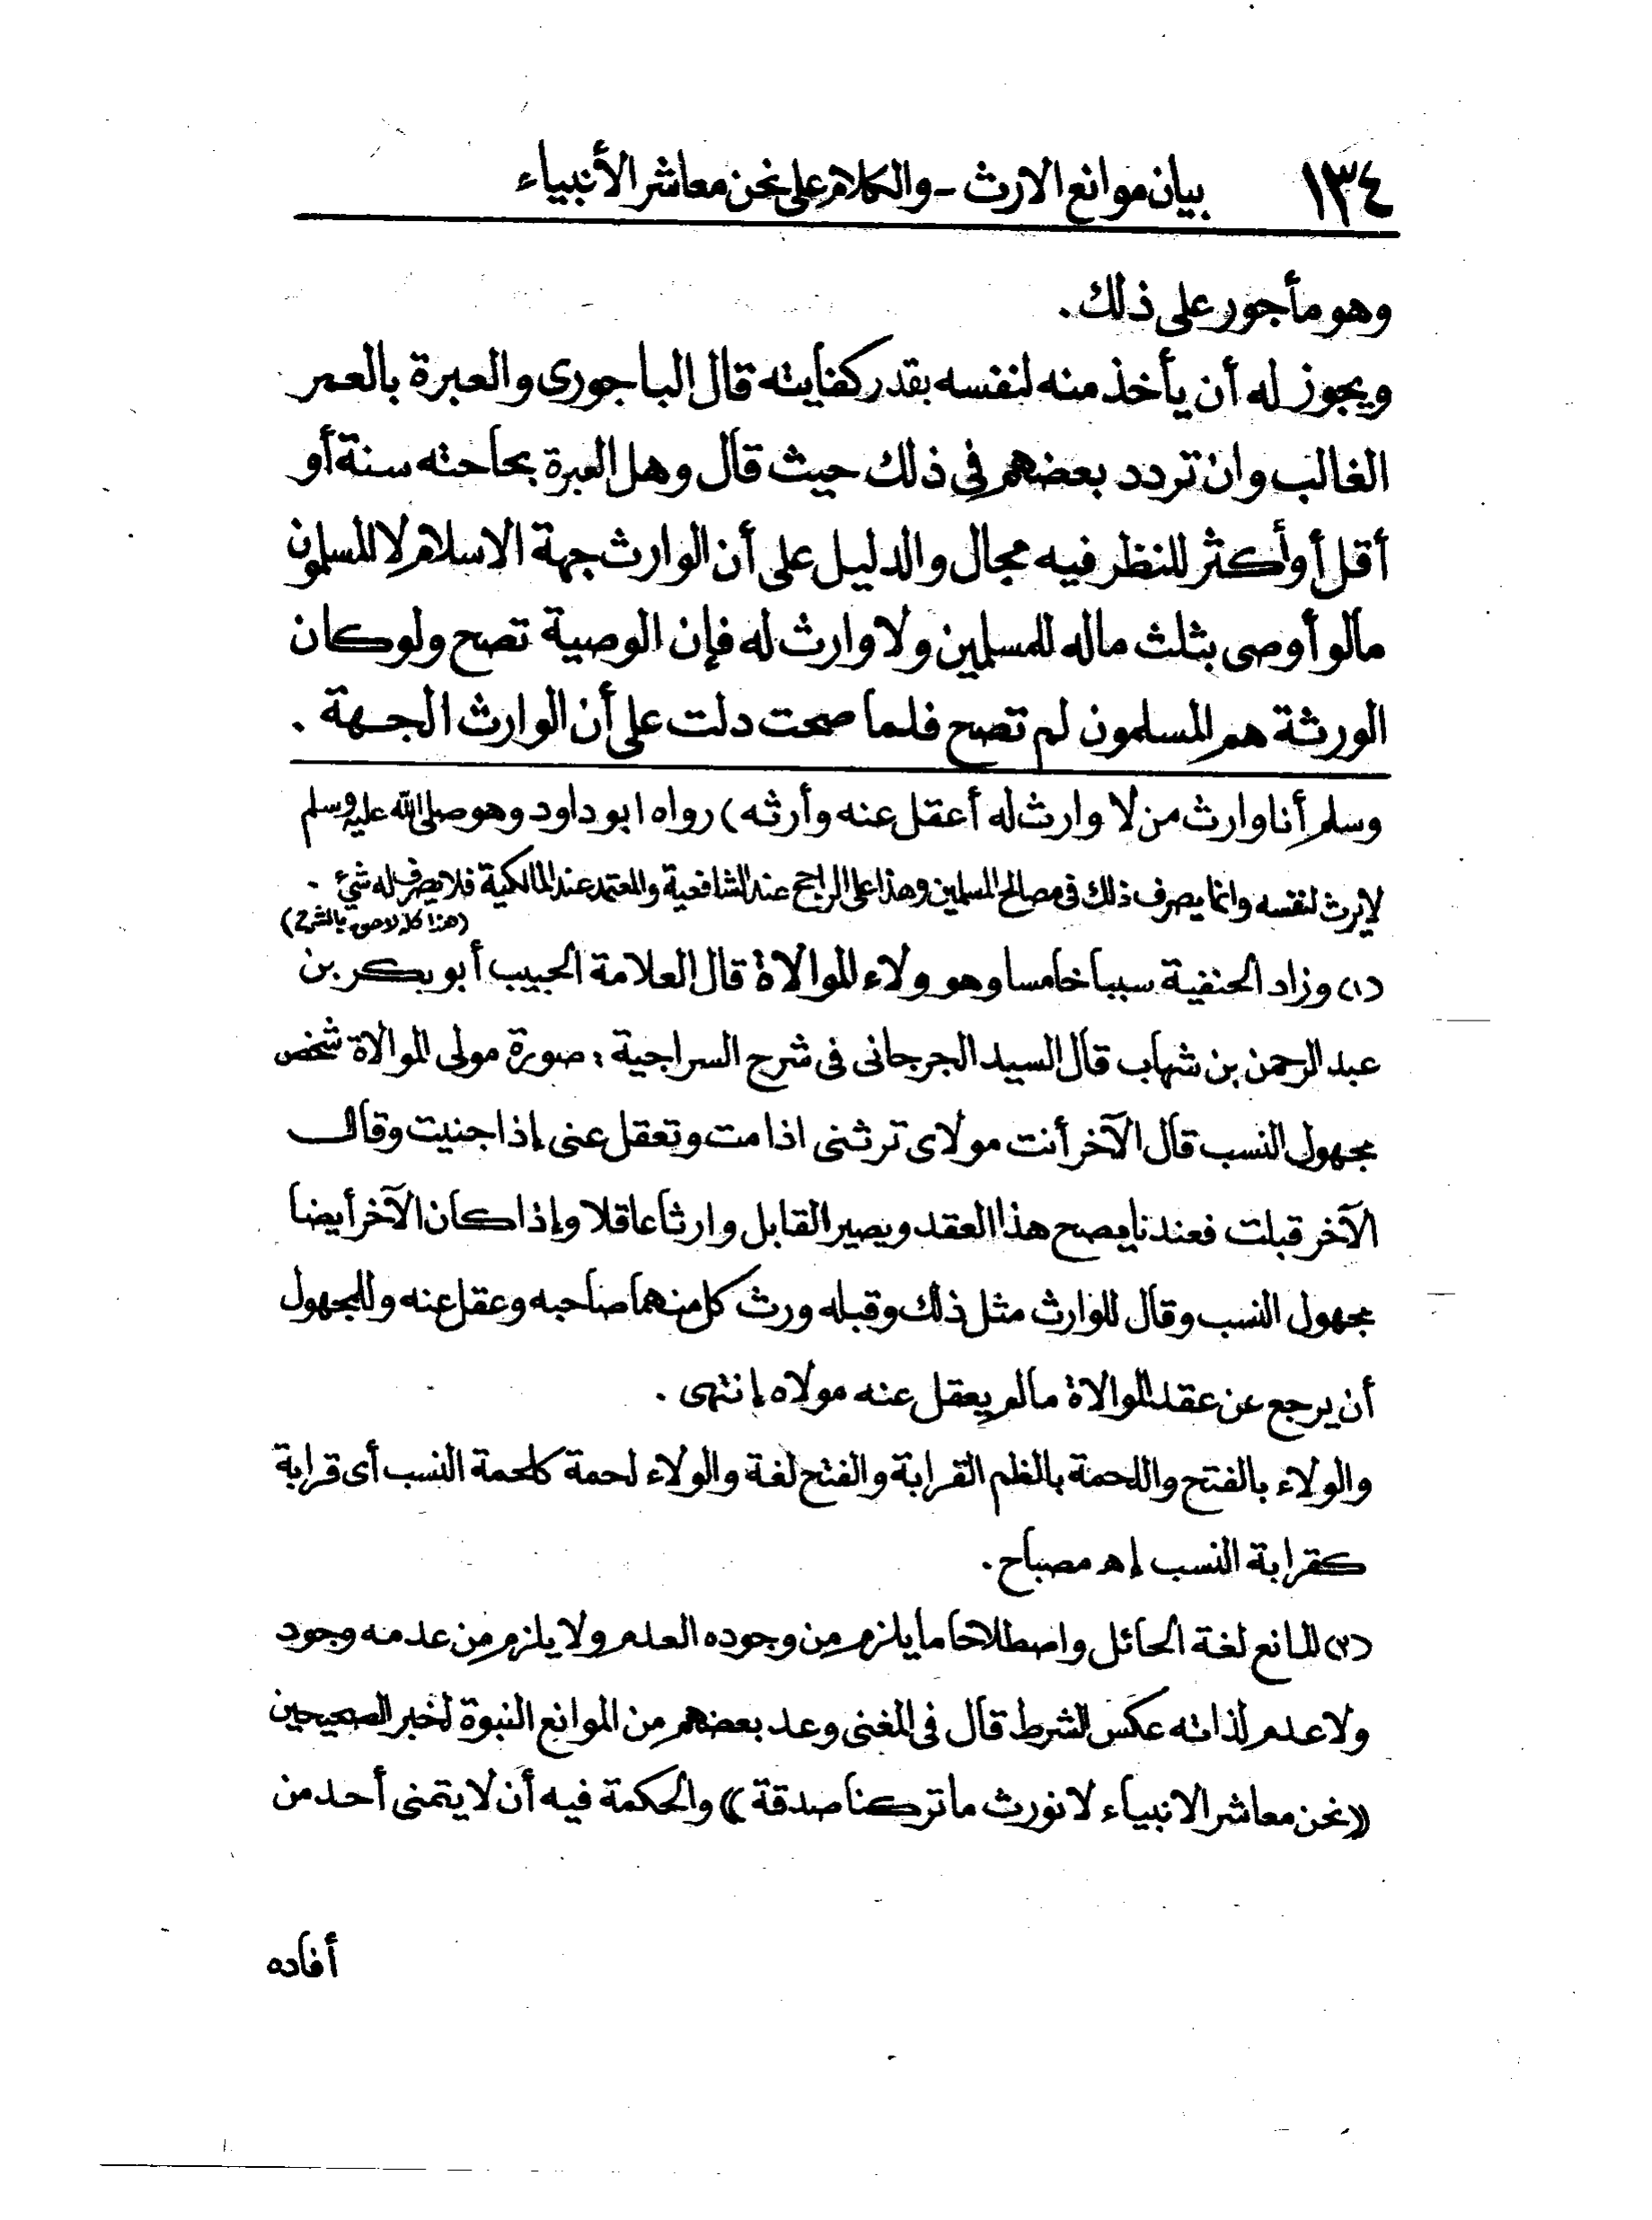 ١٣٤ بيان موانع الارث - والكلام على نحن معاشر الأنبياء
وهو مأجور على ذلك .
ويجوز له أن يأخذ منه لنفسه بقدر كفايته قال الباجورى والعبرة بالعمر
الغالب وان تردد بعضهم فى ذلك حيث قال وهل العبرة بحاجته سنة أو
أقل أو أكثر للنظر فيه مجال والدليل على أن الوارث جهة الاسلام لا المسلمون
مالو أوصى بثلث ماله للمسلمين ولا وارث له فإن الوصية تصح ولو كان
الورثة هم المسلمون لم تصح فلما صحت دلت على أن الوارث الجهة .
وسلم أنا وارث من لا وارث له أعقل عنه وأرثه ) رواه ابو داود وهو صلى الله عليه وسلم
لا يرث لنفسه وانما يصرف ذلك فى مصالح المسلمين وهذا على الراجح عند الشافعية والمعتمد عند المالكية فلا يصرف له شئ .
(هذا كله لاحق بالشرح)
(١) وزاد الحنفية سببا خامسا وهو ولاء الموالاة قال العلامة الحبيب أبو بكر بن
عبد الرحمن بن شهاب قال السيد الجرجانى فى شرح السراجية : صورة مولى الموالاة شخص
مجهول النسب قال الآخر أنت مولاى ترثنى اذا مت وتعقل عنى إذا جنيت وقال
الآخر قبلت فعندنا يصح هذا العقد ويصير القابل وارثا عاقلا وإذا كان الآخر أيضا
مجهول النسب وقال للوارث مثل ذلك وقبله ورث كل منهما صاحبه وعقل عنه وللمجهول
أن يرجع عن عقد الموالاة مالم يعقل عنه مولاه إنتهى .
والولاء بالفتح واللحمة بالظم القرابة والفتح لغة والولاء لحمة كلحمة النسب أى قرابة
كقرابة النسب إه مصباح .
(٢) المانع لغة الحائل واصطلاحا ما يلزم من وجوده العدم ولا يلزم من عدمه وجود
ولا عدم لذاته عكس الشرط قال فى المغنى وعد بعضهم من الموانع النبوة لخبر الصحيحين
((نحن معاشر الانبياء لا نورث ما تركنا صدقة)) والحكمة فيه أن لا يتمنى أحد من
أفاده